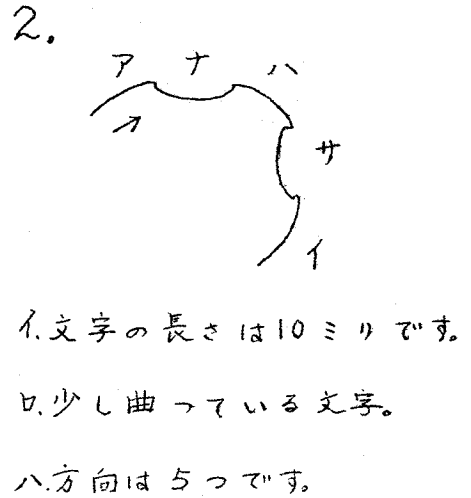 2.
ア ナ ハ
サ
イ
イ.文字の長さは10ミリです。
ロ.少し曲っている文字。
ハ.方向は5つです。